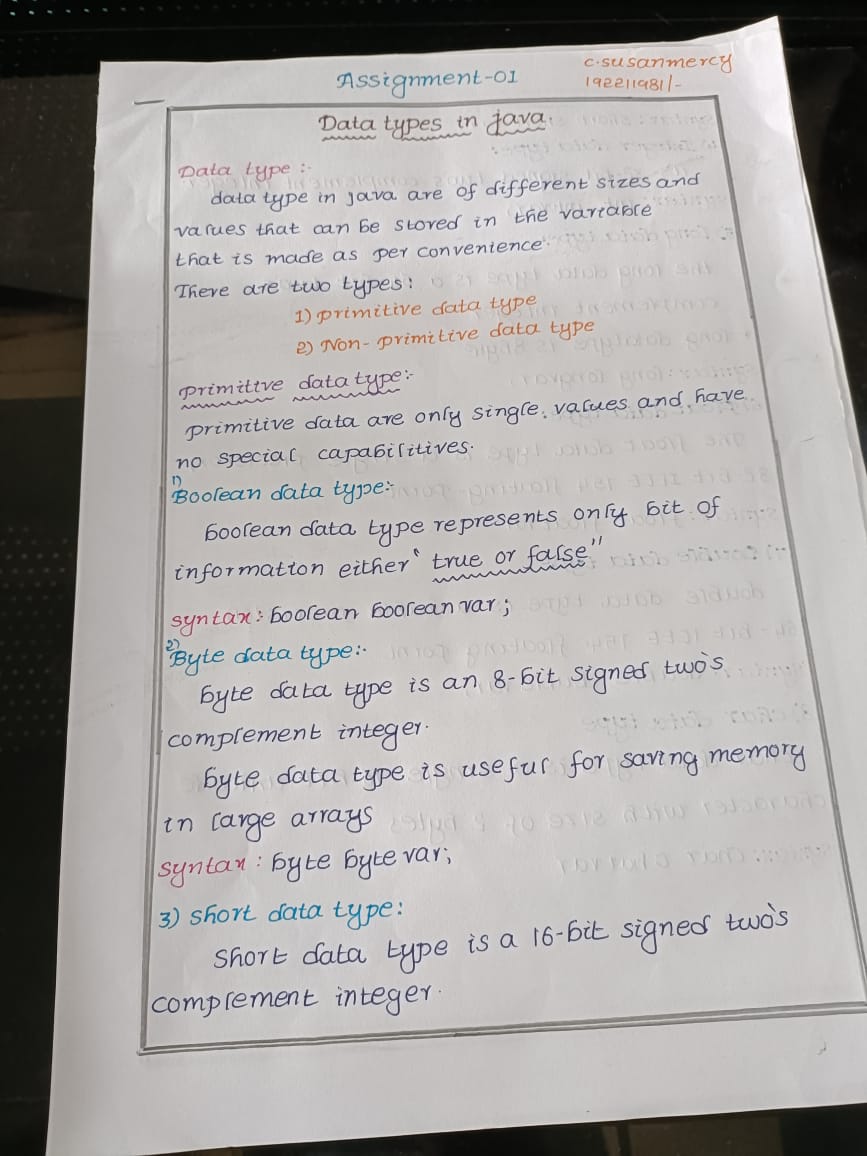 Assignment-01
c.susanmercy
192211981/-
Data types in java.
Data type :-
data type in java are of different sizes and
values that can be stored in the variable
that is made as per convenience.
There are two types:
1) primitive data type
2) Non-primitive data type
primitive data type:-
primitive data are only single values and have
no special capabilitives.
1) Boolean data type:-
boolean data type represents only bit of
information either "true or false"
syntax: boolean booleanvar;
2) Byte data type:-
byte data type is an 8-bit signed two's
complement integer.
byte data type is useful for saving memory
in large arrays
syntax: byte bytevar;
3) short data type:
short data type is a 16-bit signed two's
complement integer.